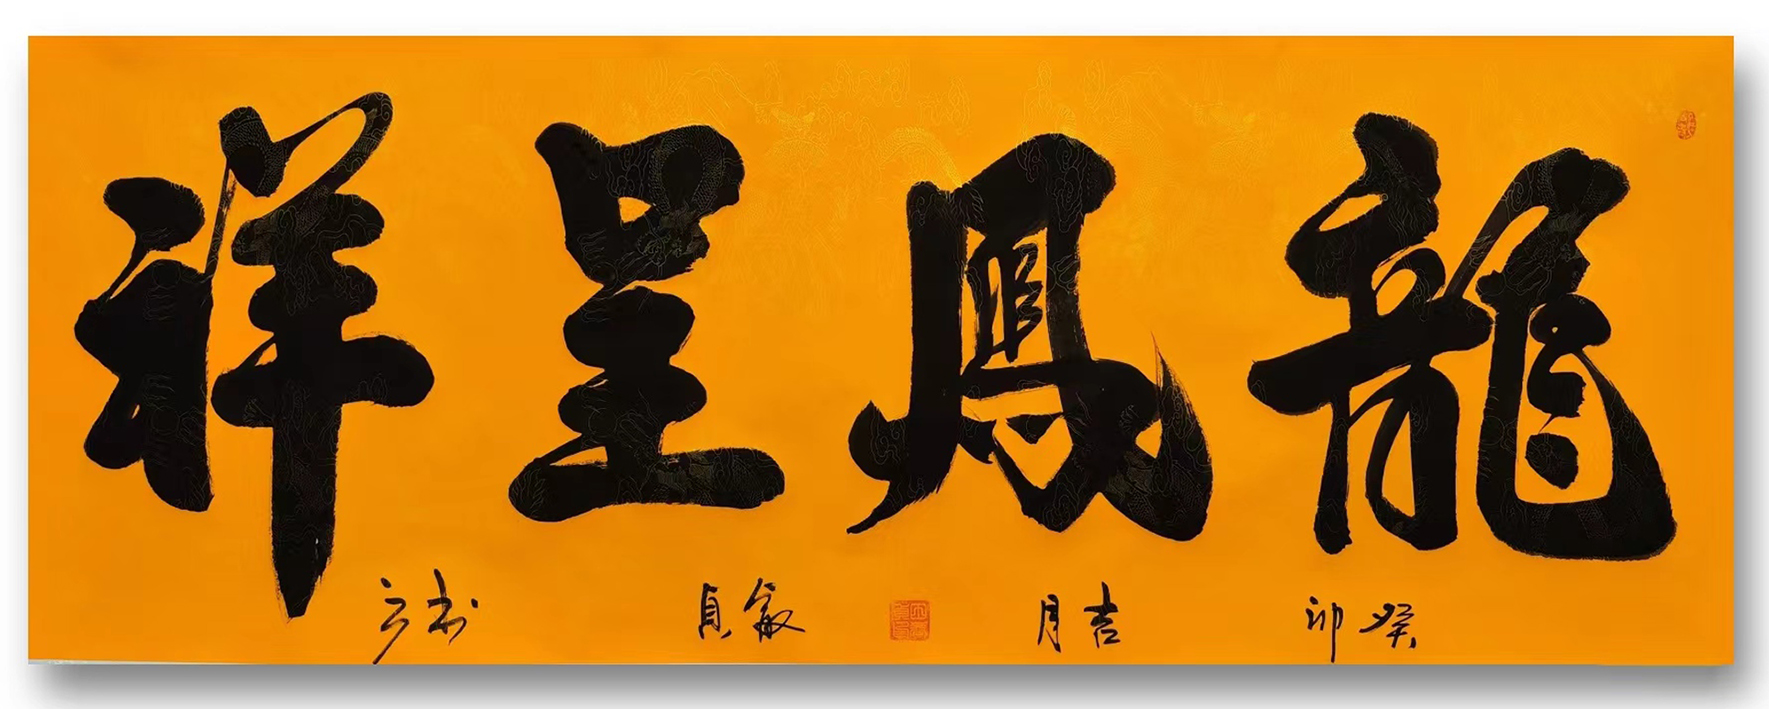 龍鳳呈祥
癸卯 吉月 貞 书